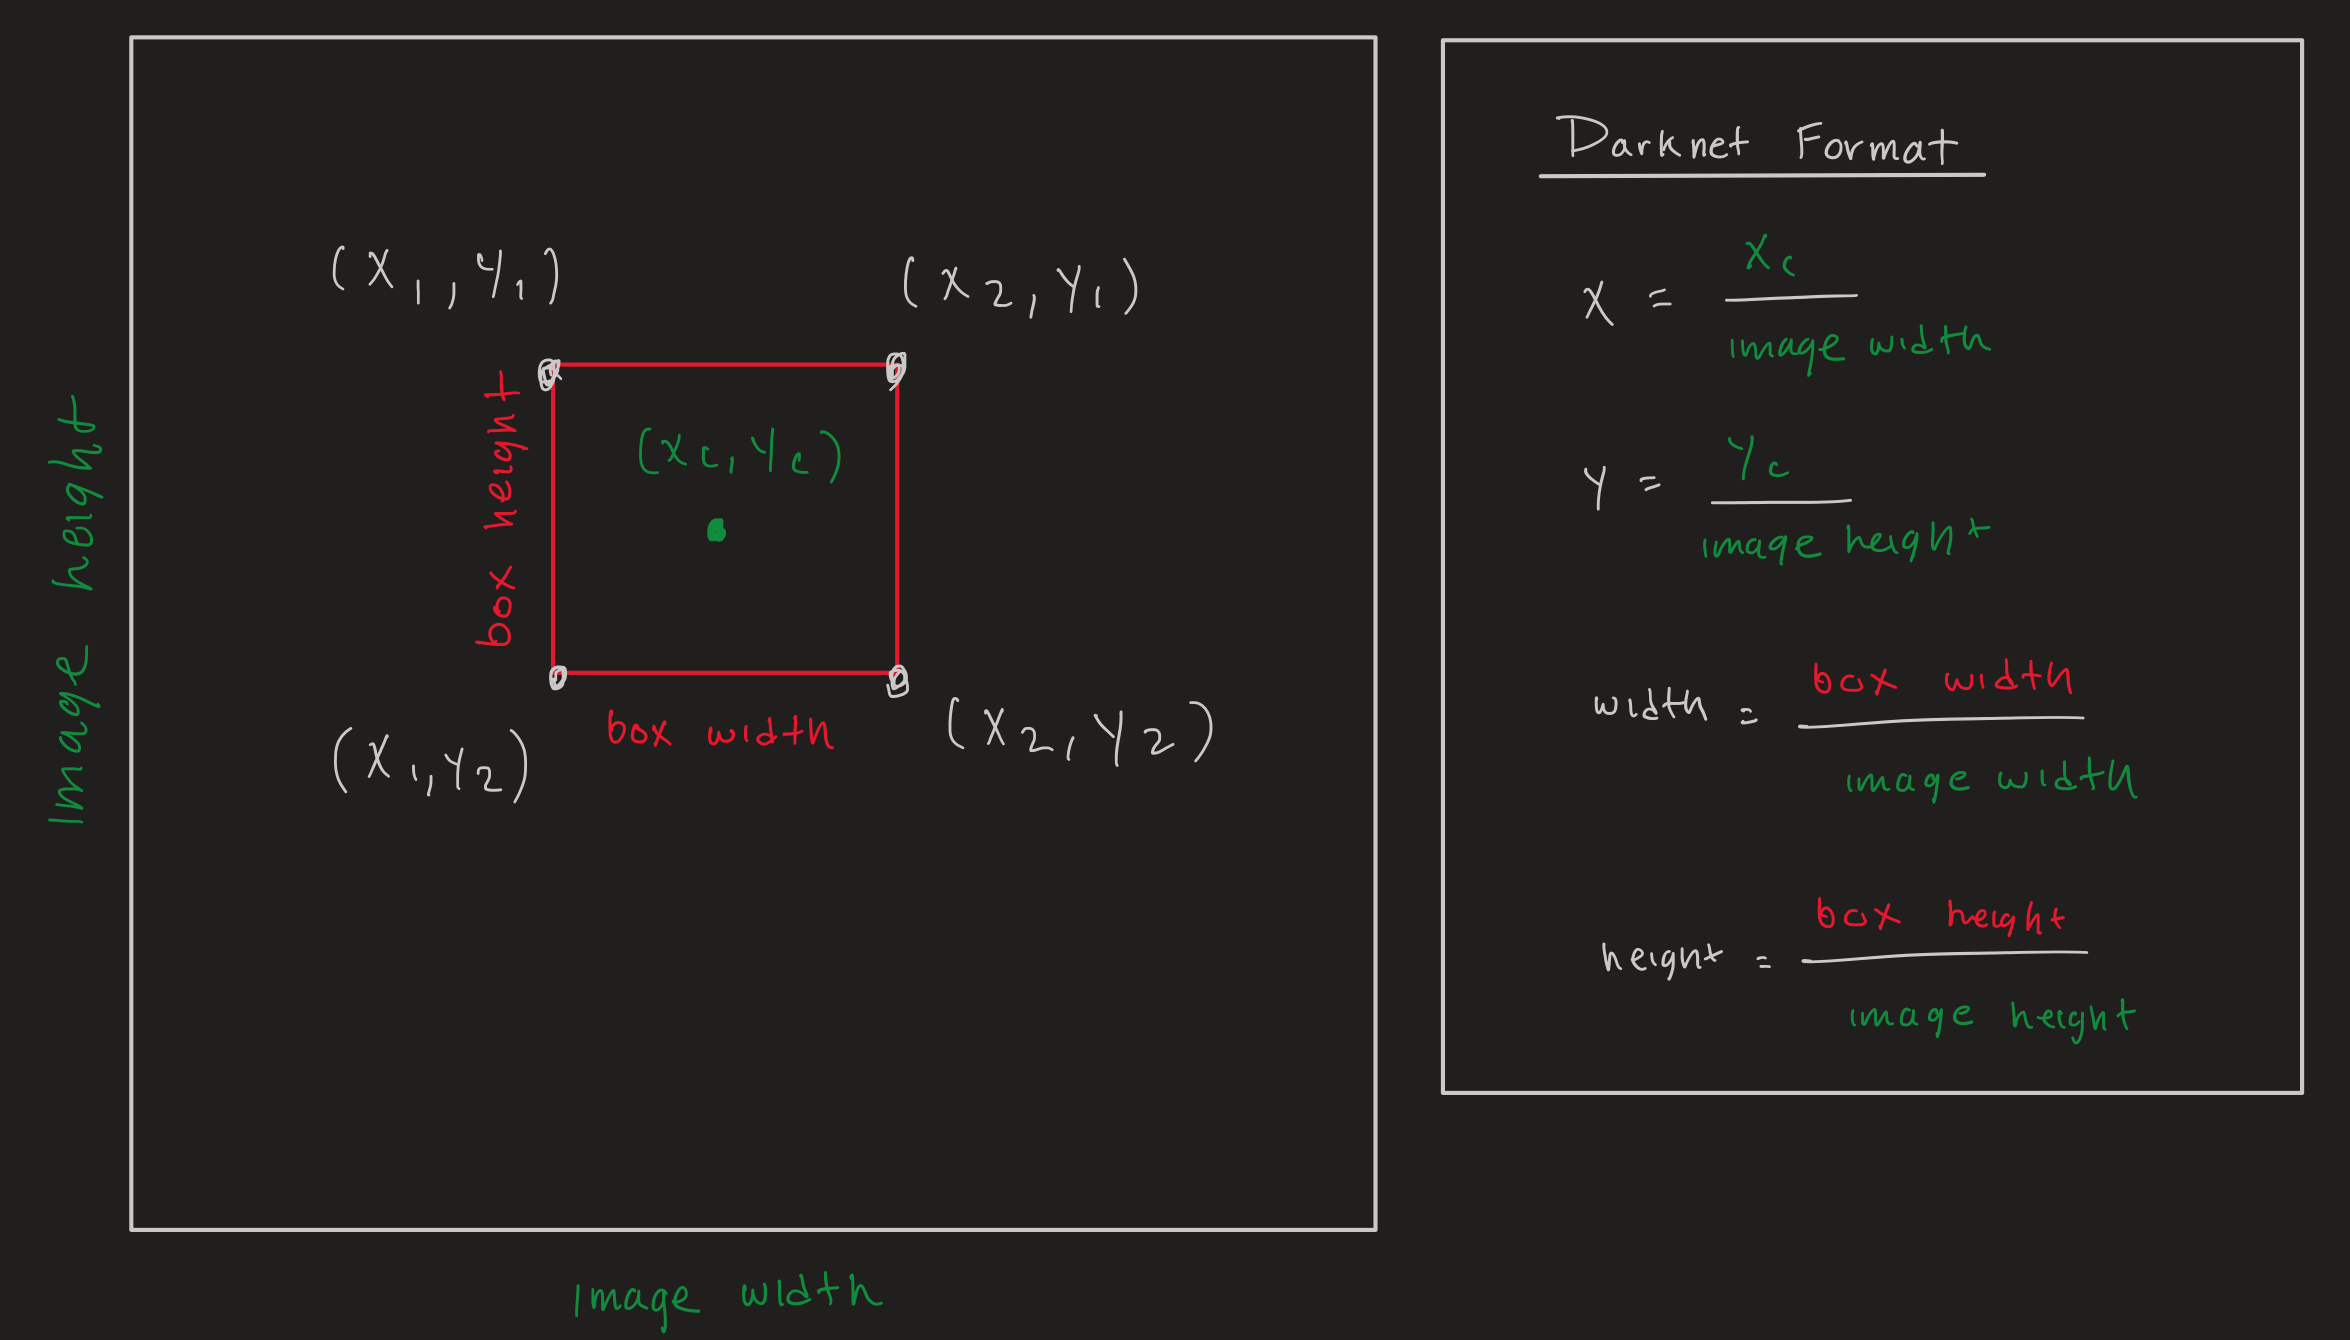 (X₁, Y₁)
(X₂, Y₁)
box height
(Xc, Yc)
Image height
(X₁, Y₂)
box width
(X₂, Y₂)
image width
Darknet Format
X = Xc
image width
Y = Yc
image height
width = box width
image width
height = box height
image height